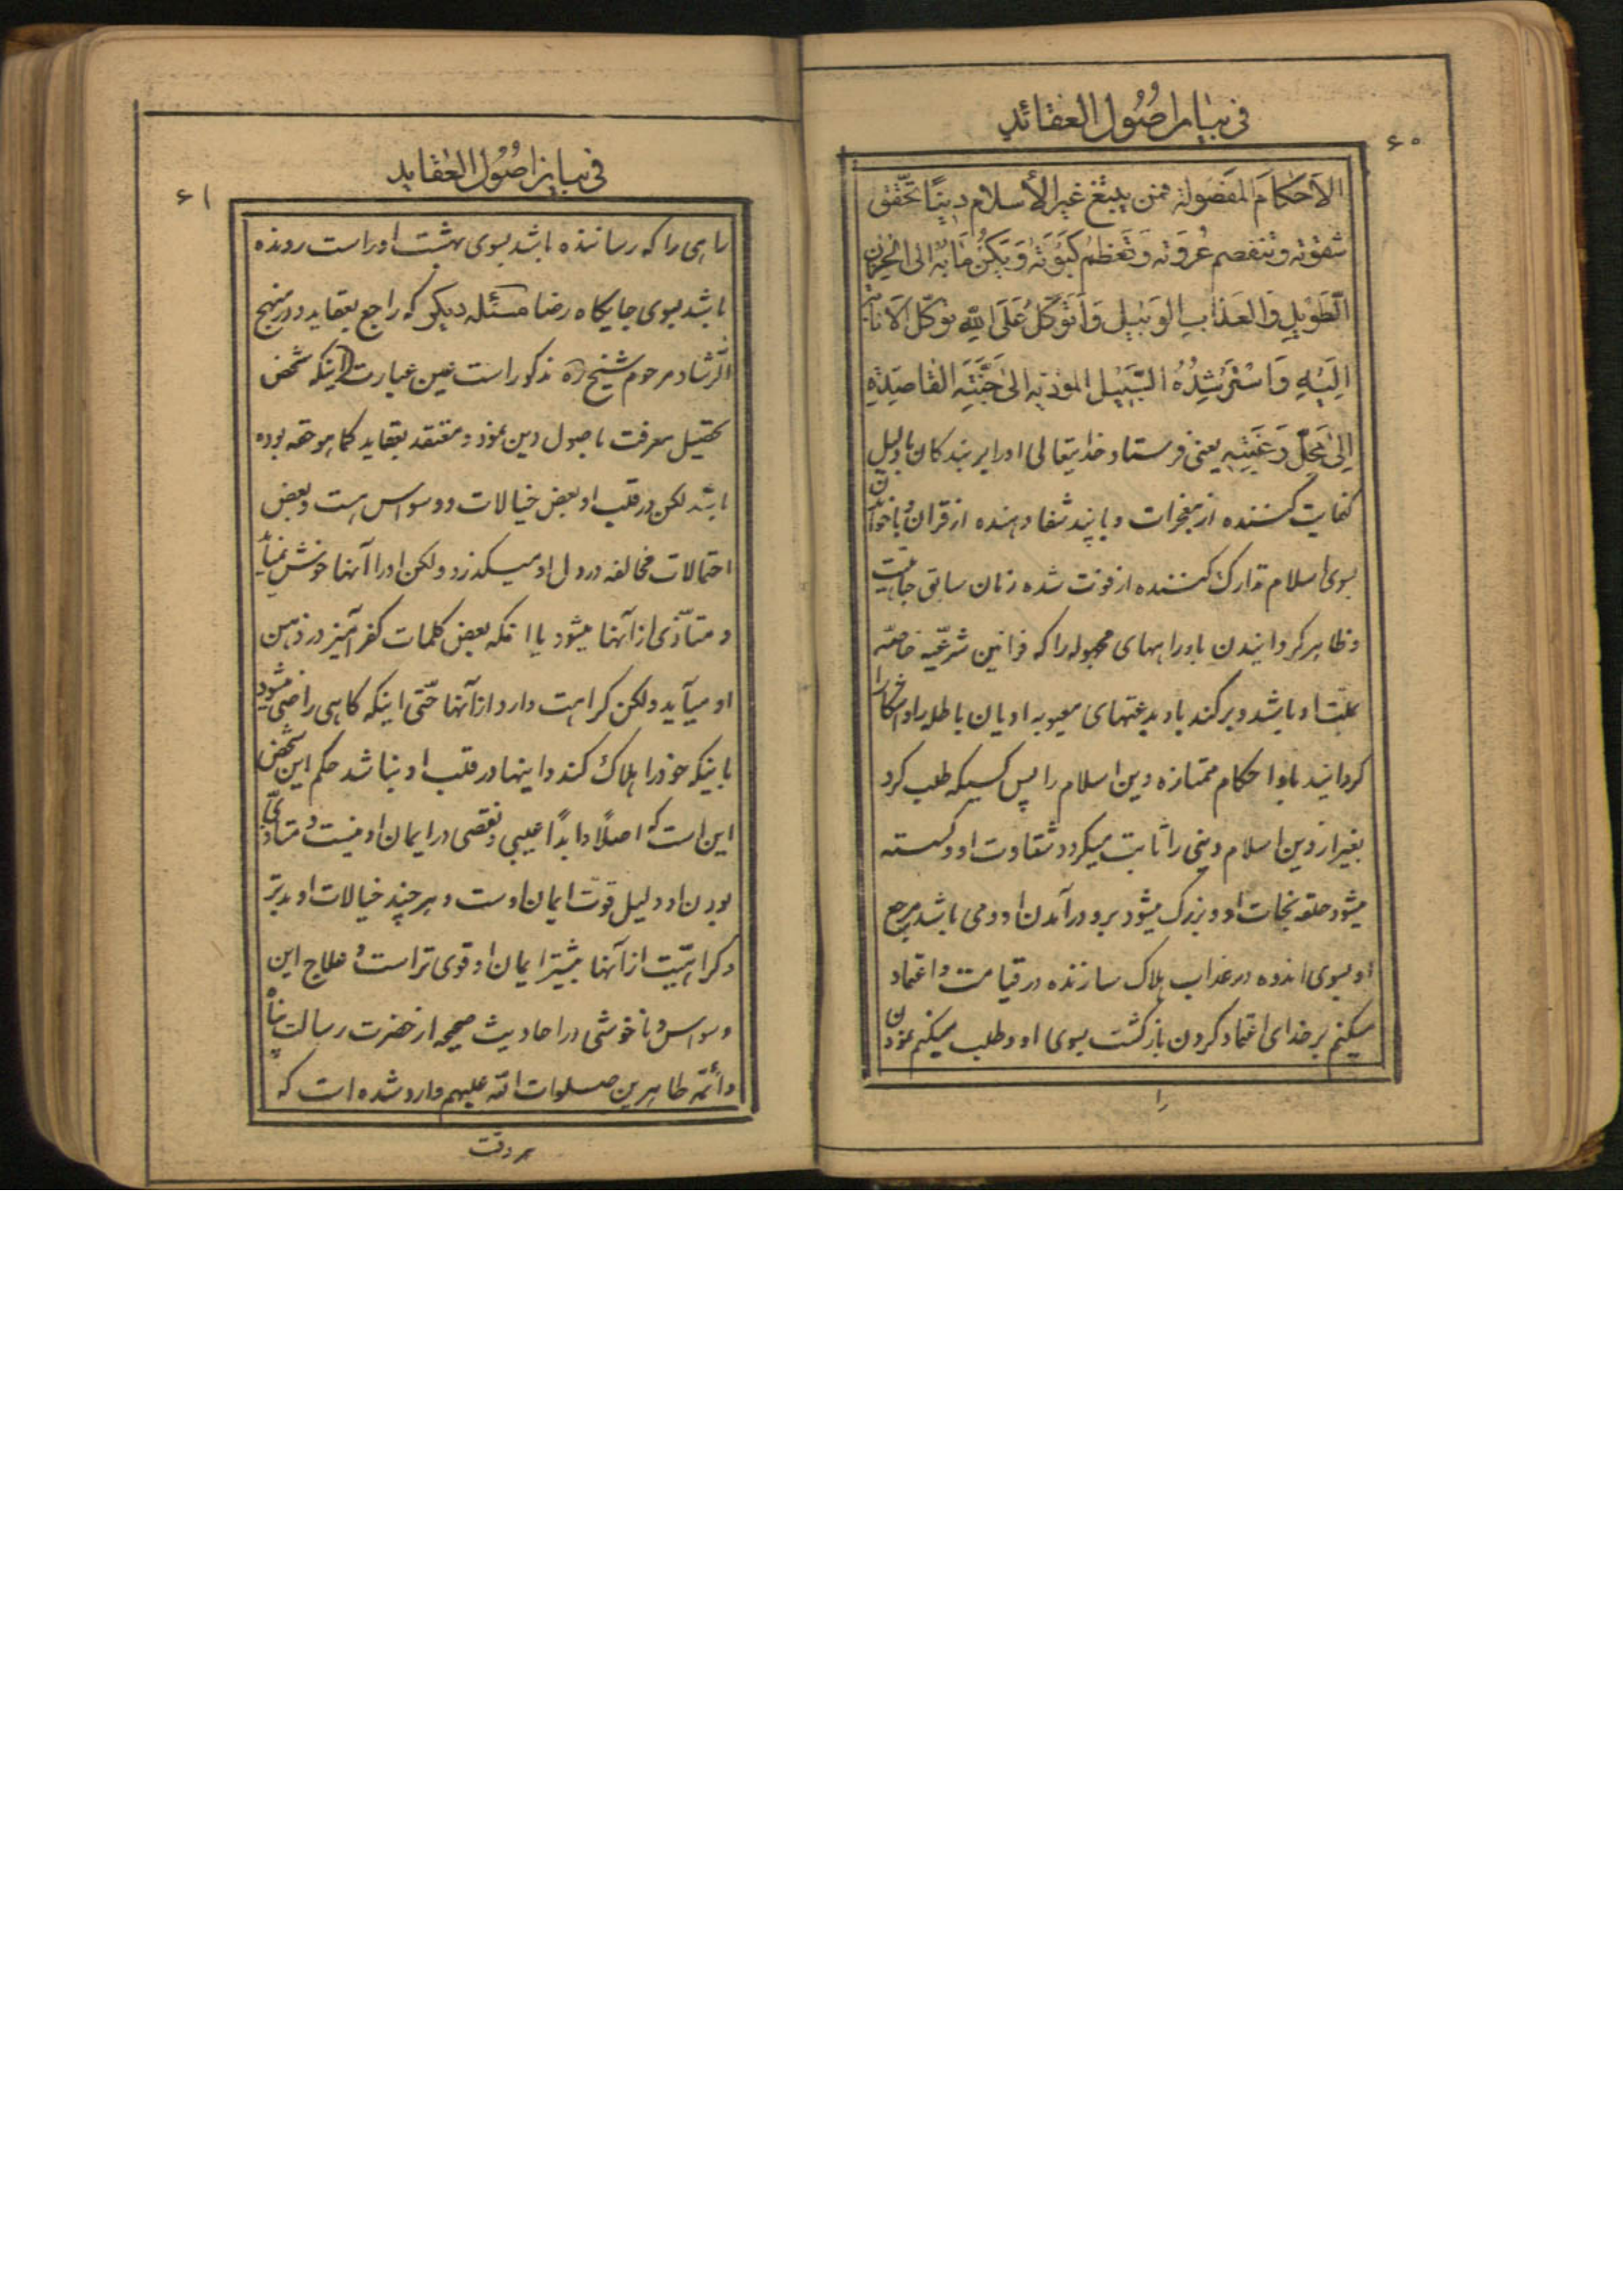 فی بیان اصول العقائد
۶۰
الاَحکامَ المَفصُولة فمن یبتغ غیر الأسلام دینًا تحّقق
شقوته و تنفصم عُروَته وَ تَعظمُ کَبوَته وَ یَکُن مَابُه الی الحُزن
الطَویلِ وَ العَذابِ الوَبیلِ وَ اَتَوکَّلُ عَلَی اللهِ توکّل الاَنابة
اِلَیهِ وَ اَستَرشِدُهُ السَّبیلَ المؤدّیه الیٰ جَنَّتِه القاصِدَةِ
اِلیٰ مَحلّ رَغبَتِه یعنی فرستاد خدایتعالی او را بر بندکان با دلیل
کفایت کننده از معجزات و با پند شفا دهنده از قران و با خواندن
بسوی اسلام تدارک کننده از فوت شده زمان سابق جاهلیت
و ظاهر کردانیدن باو راههای مجهوله را که قوانین شرعیّه خاصّه
بملّت او باشد و برکند باو بدعتهای معیوبه ادیان باطله را و اشکارا
کردانید باو احکام ممتازه دین اسلام را پس کسیکه طلب کرد
بغیر از دین اسلام دینی را ثابت میکردد شقاوت او و کسسته
میشود حلقه نجات او و بزرک میشود برو درآمدن او و می باشد مرجع
او بسوی اندوه در عذاب هلاک سازنده در قیامت و اعتماد
میکنم بر خدای اعتماد کردن بازکشت بسوی او و طلب میکنم نمودن
را
فی بیان اصول العقاید
۶۱
راهی را که رساننده باشد بسوی بهشت او راست رونده
باشد بسوی جایکاه رضا مسئله دیکر که راجع بعقاید و در منهج
الرّشاد مرحوم شیخ ره مذکور است عین عبارت اینکه شخص
تحصیل معرفت باصول دین نمود و معتقد بعقاید کما هو حقه بوده
باشد لکن در قلب او بعض خیالات و وسواس هست و بعض
احتمالات مخالفه در دل او میکذرد ولکن او را آنها خوش نمیاید
و متاذّی از آنها میشود یا انکه بعض کلمات کفرآمیز در ذهن
او میآید ولکن کراهت دارد از آنها حتّی اینکه کاهی راضی میشود
باینکه خود را هلاک کند و اینها در قلب او نباشد حکم این شخص
این است که اصلًا و ابدًا عیبی و نقصی در ایمان او نیست و متاذّی
بودن او دلیل قوّت ایمان اوست و هر چند خیالات او بدتر
و کراهتیت از آنها بیشتر ایمان او قوی تر است و علاج این
وسواس و ناخوشی در احادیث صحیحه از حضرت رسالت پناه
و ائمّه طاهرین صلوات الله علیهم وارد شده است که
هر وقت